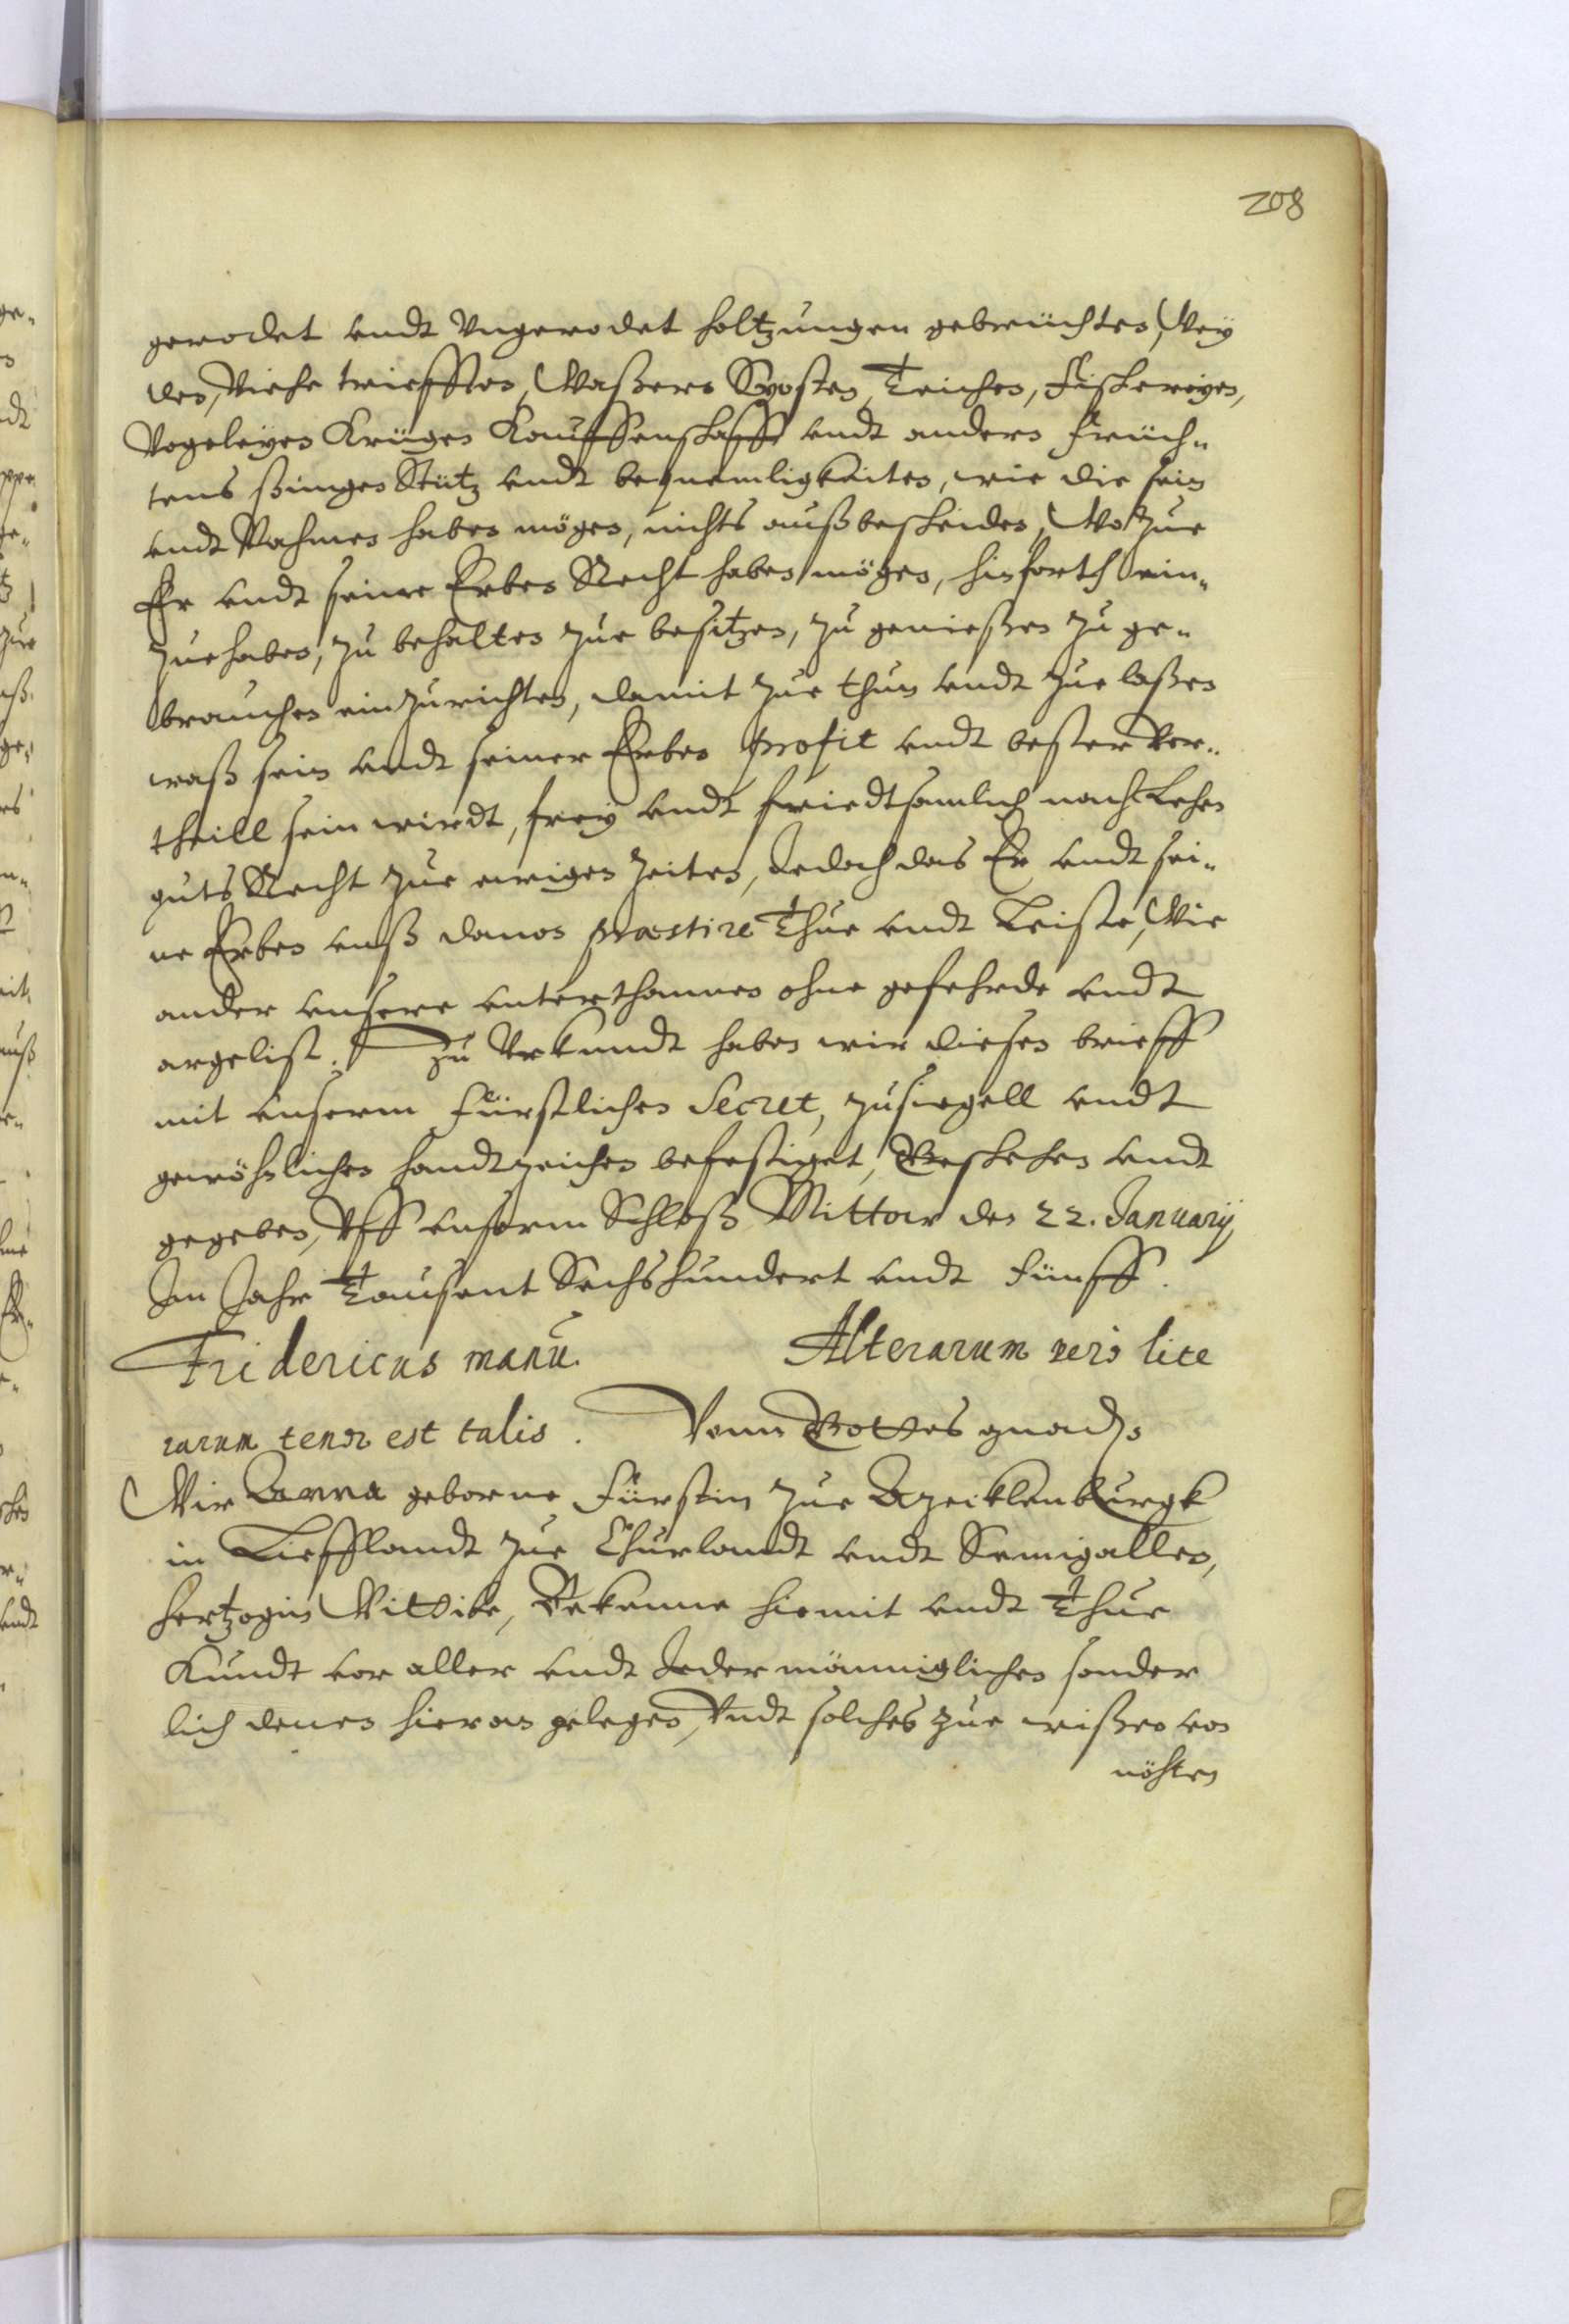 208
gerodet undt Ungerodet holtzungen gebrüchten, Wey
den, Viehe triefften, Waßeren Sypsten, Teichen, Fischereyen,
Vogeleyen Krügen Kauffenschafft undt andern früch-
tens undt bequemligkeiten, wie die sein
undt Nahmen haben mögen, nichts außbescheiden, Wo Zue
Er undt seine Erben Macht haben mögen, hinforth ein-
zuehaben, zu behalten zue besitzen, zu genießen zu ge-
brauchen einzurichten, damit zue thun undt zue laßen
waß sein undt seiner Erben profit undt bester Vor-
theill sein wirdt, frey undt friedtsamlich nach Lehen
guts Recht zue ewigen Zeiten, Jedoch das Er undt sei-
ne Erben unß davon præstire Thue undt Leiste, Wie
ander unsere unterthannen ohne gefehrde undt
argelist. Zu Urkundt haben wir diesen brieff
mit unserm Fürstlichen Secret, zusiegell undt
gewöhnlichen handtzeichen befestiget, Geschehen undt
gegeben, Uff unserm Schloß Mittow den 22. Januarij
Im Jahr Tausent Sechshundert undt Fünff.
Fridericus manu. Alterarum vero lite
rarum tenor est talis. Vonn Gottes gnaden
Wir Anna geborne Fürstin zue Meckelnburgk
in Liefflandt zue Churlandt undt Semigallen,
hertzogin Wittibe, Bekenne hiemit undt Thue
Kundt vor aller undt Jedermänniglichen sonder
lich denen hieran gelegen, Undt solches zue wißen von
nöhten